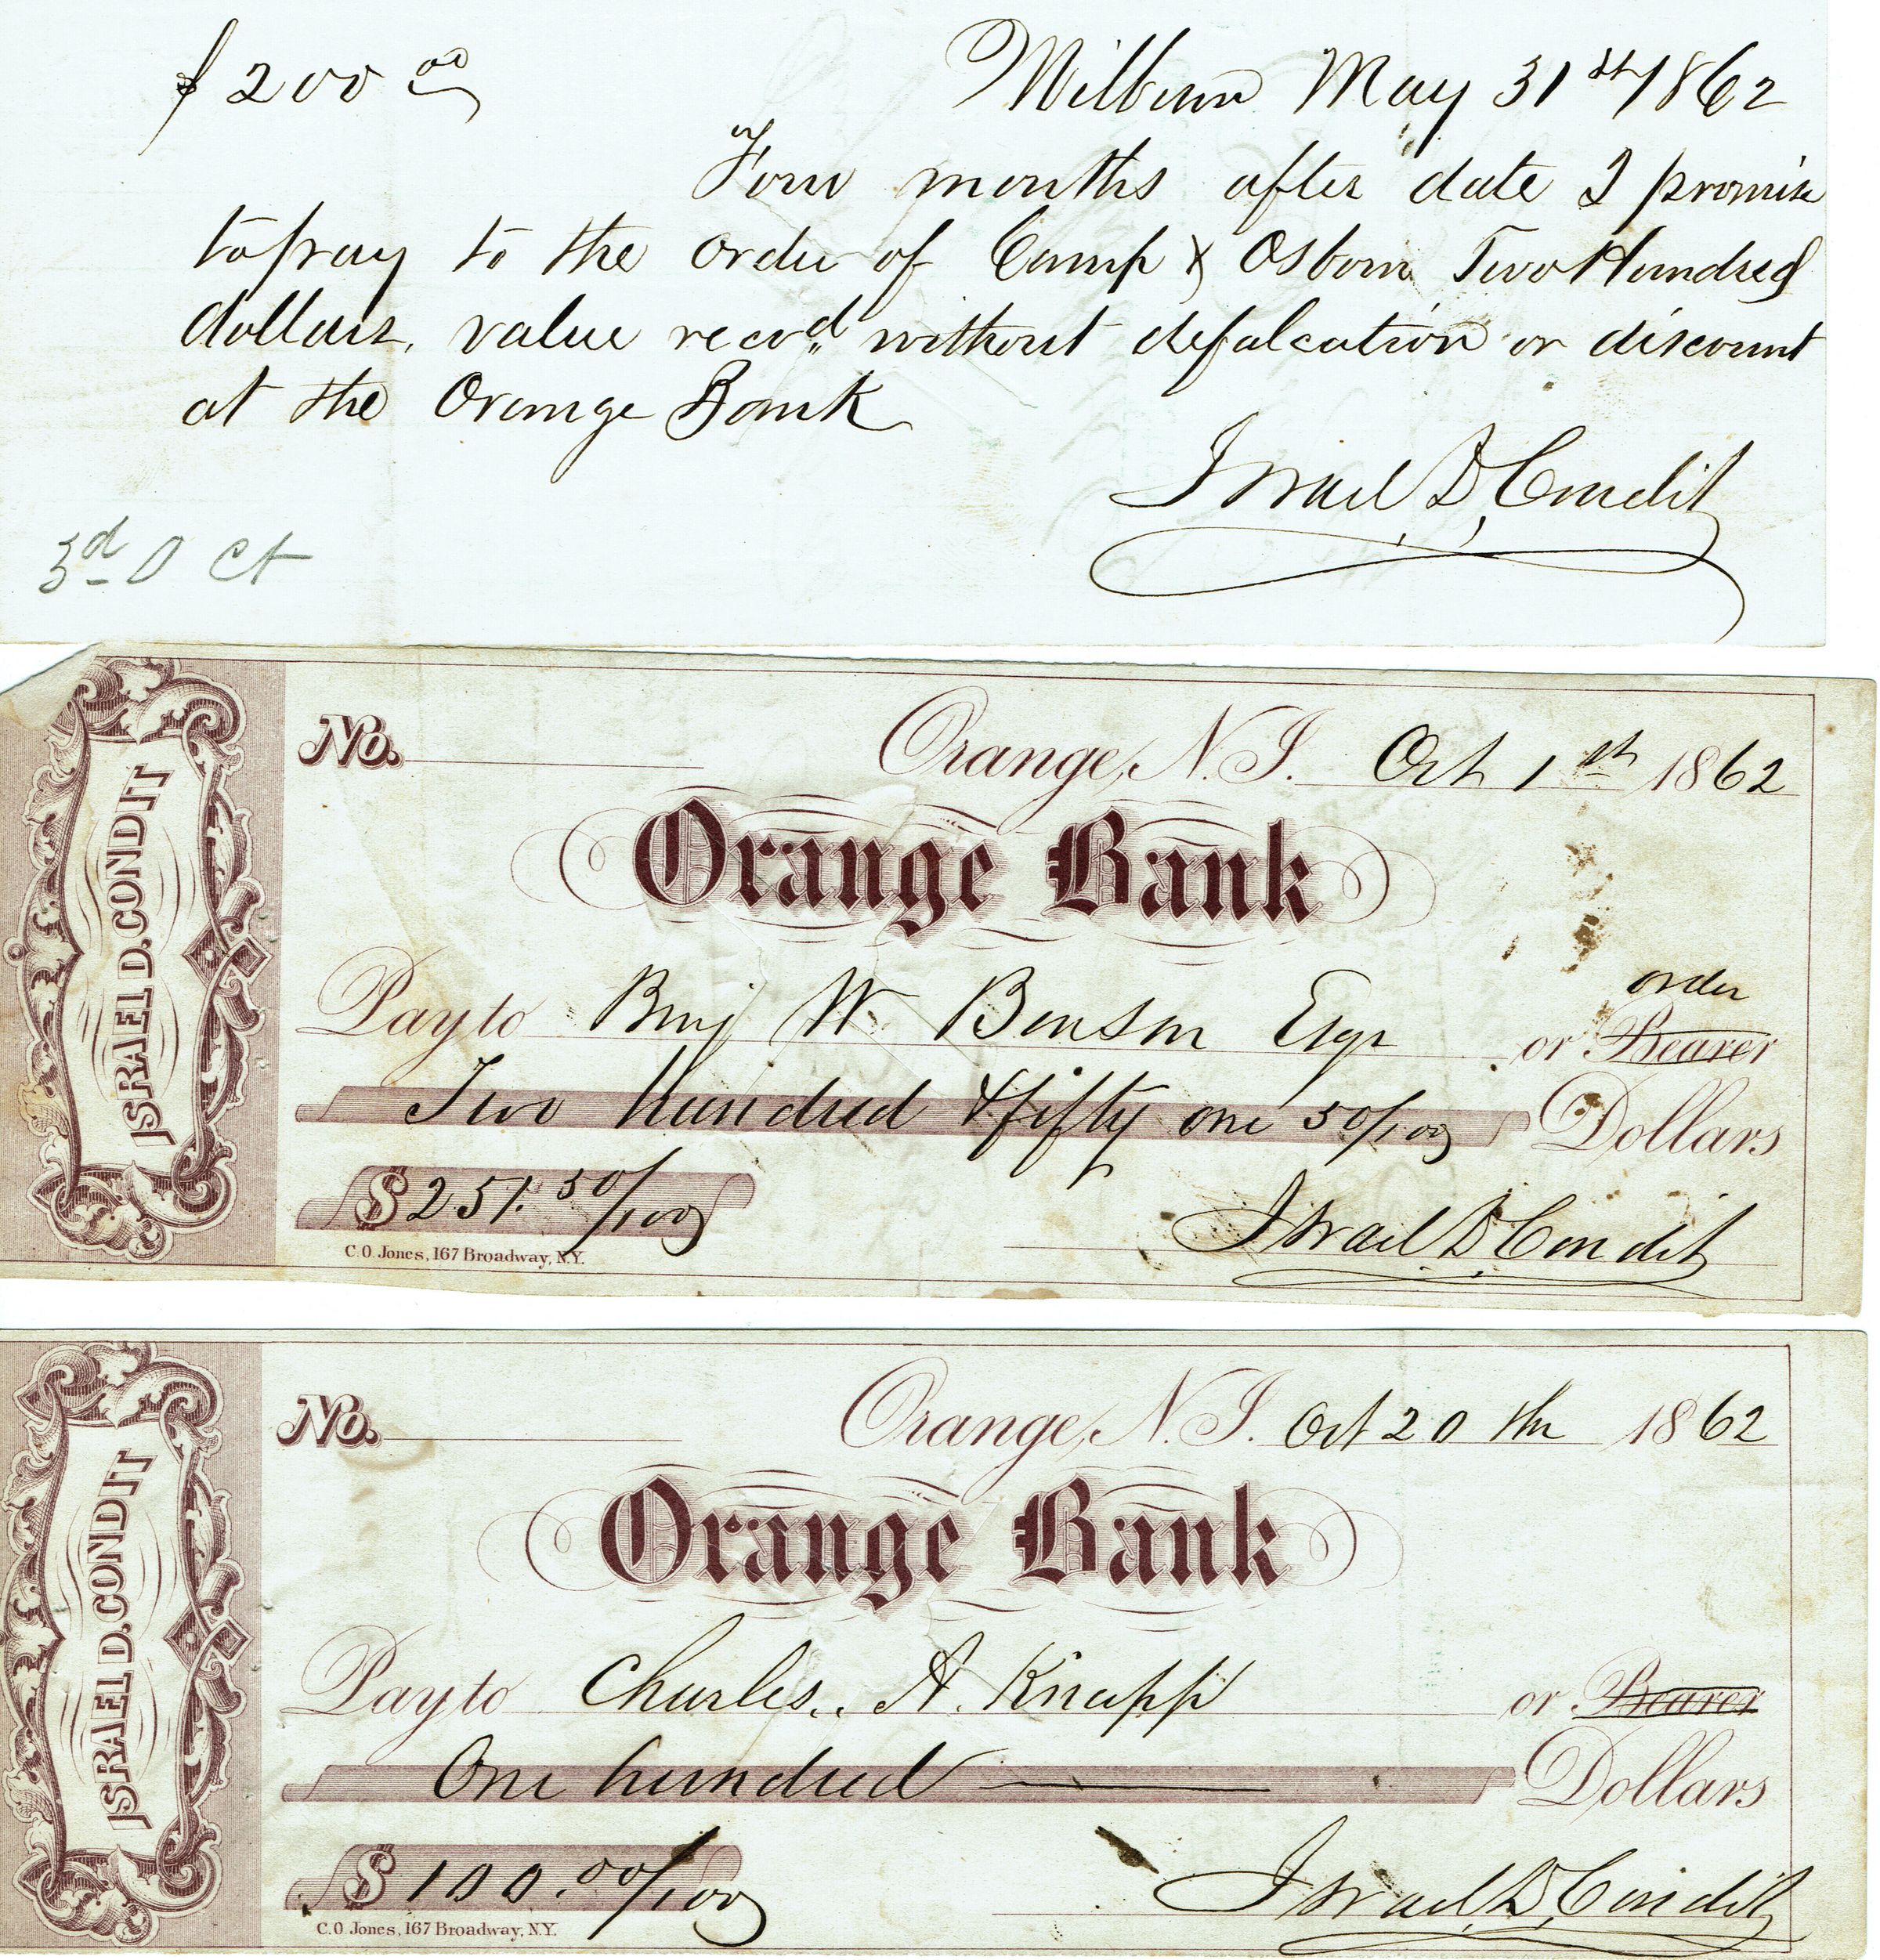 $200 00 Milburn May 31st 1862
Four months after date I promise
to pay to the order of Camp & Osborn Two Hundred
dollars, value recvd without defalcation or discount
at the Orange Bank
Israel D. Condit
3d Oct
ISRAEL D. CONDIT
No. Orange, N.J. Oct 1st 1862
Orange Bank
order
Pay to Benj W. Benson Esqr or Bearer
Two hundred & fifty one 50/100 Dollars
$251.50/100
Israel D Condit
C.O. Jones, 167 Broadway, N.Y.
ISRAEL D. CONDIT
No. Orange, N.J. Oct 20th 1862
Orange Bank
Pay to Charles.. A. Knapp or Bearer
One hundred Dollars
$100.00/100
Israel D. Condit
C.O. Jones, 167 Broadway, N.Y.